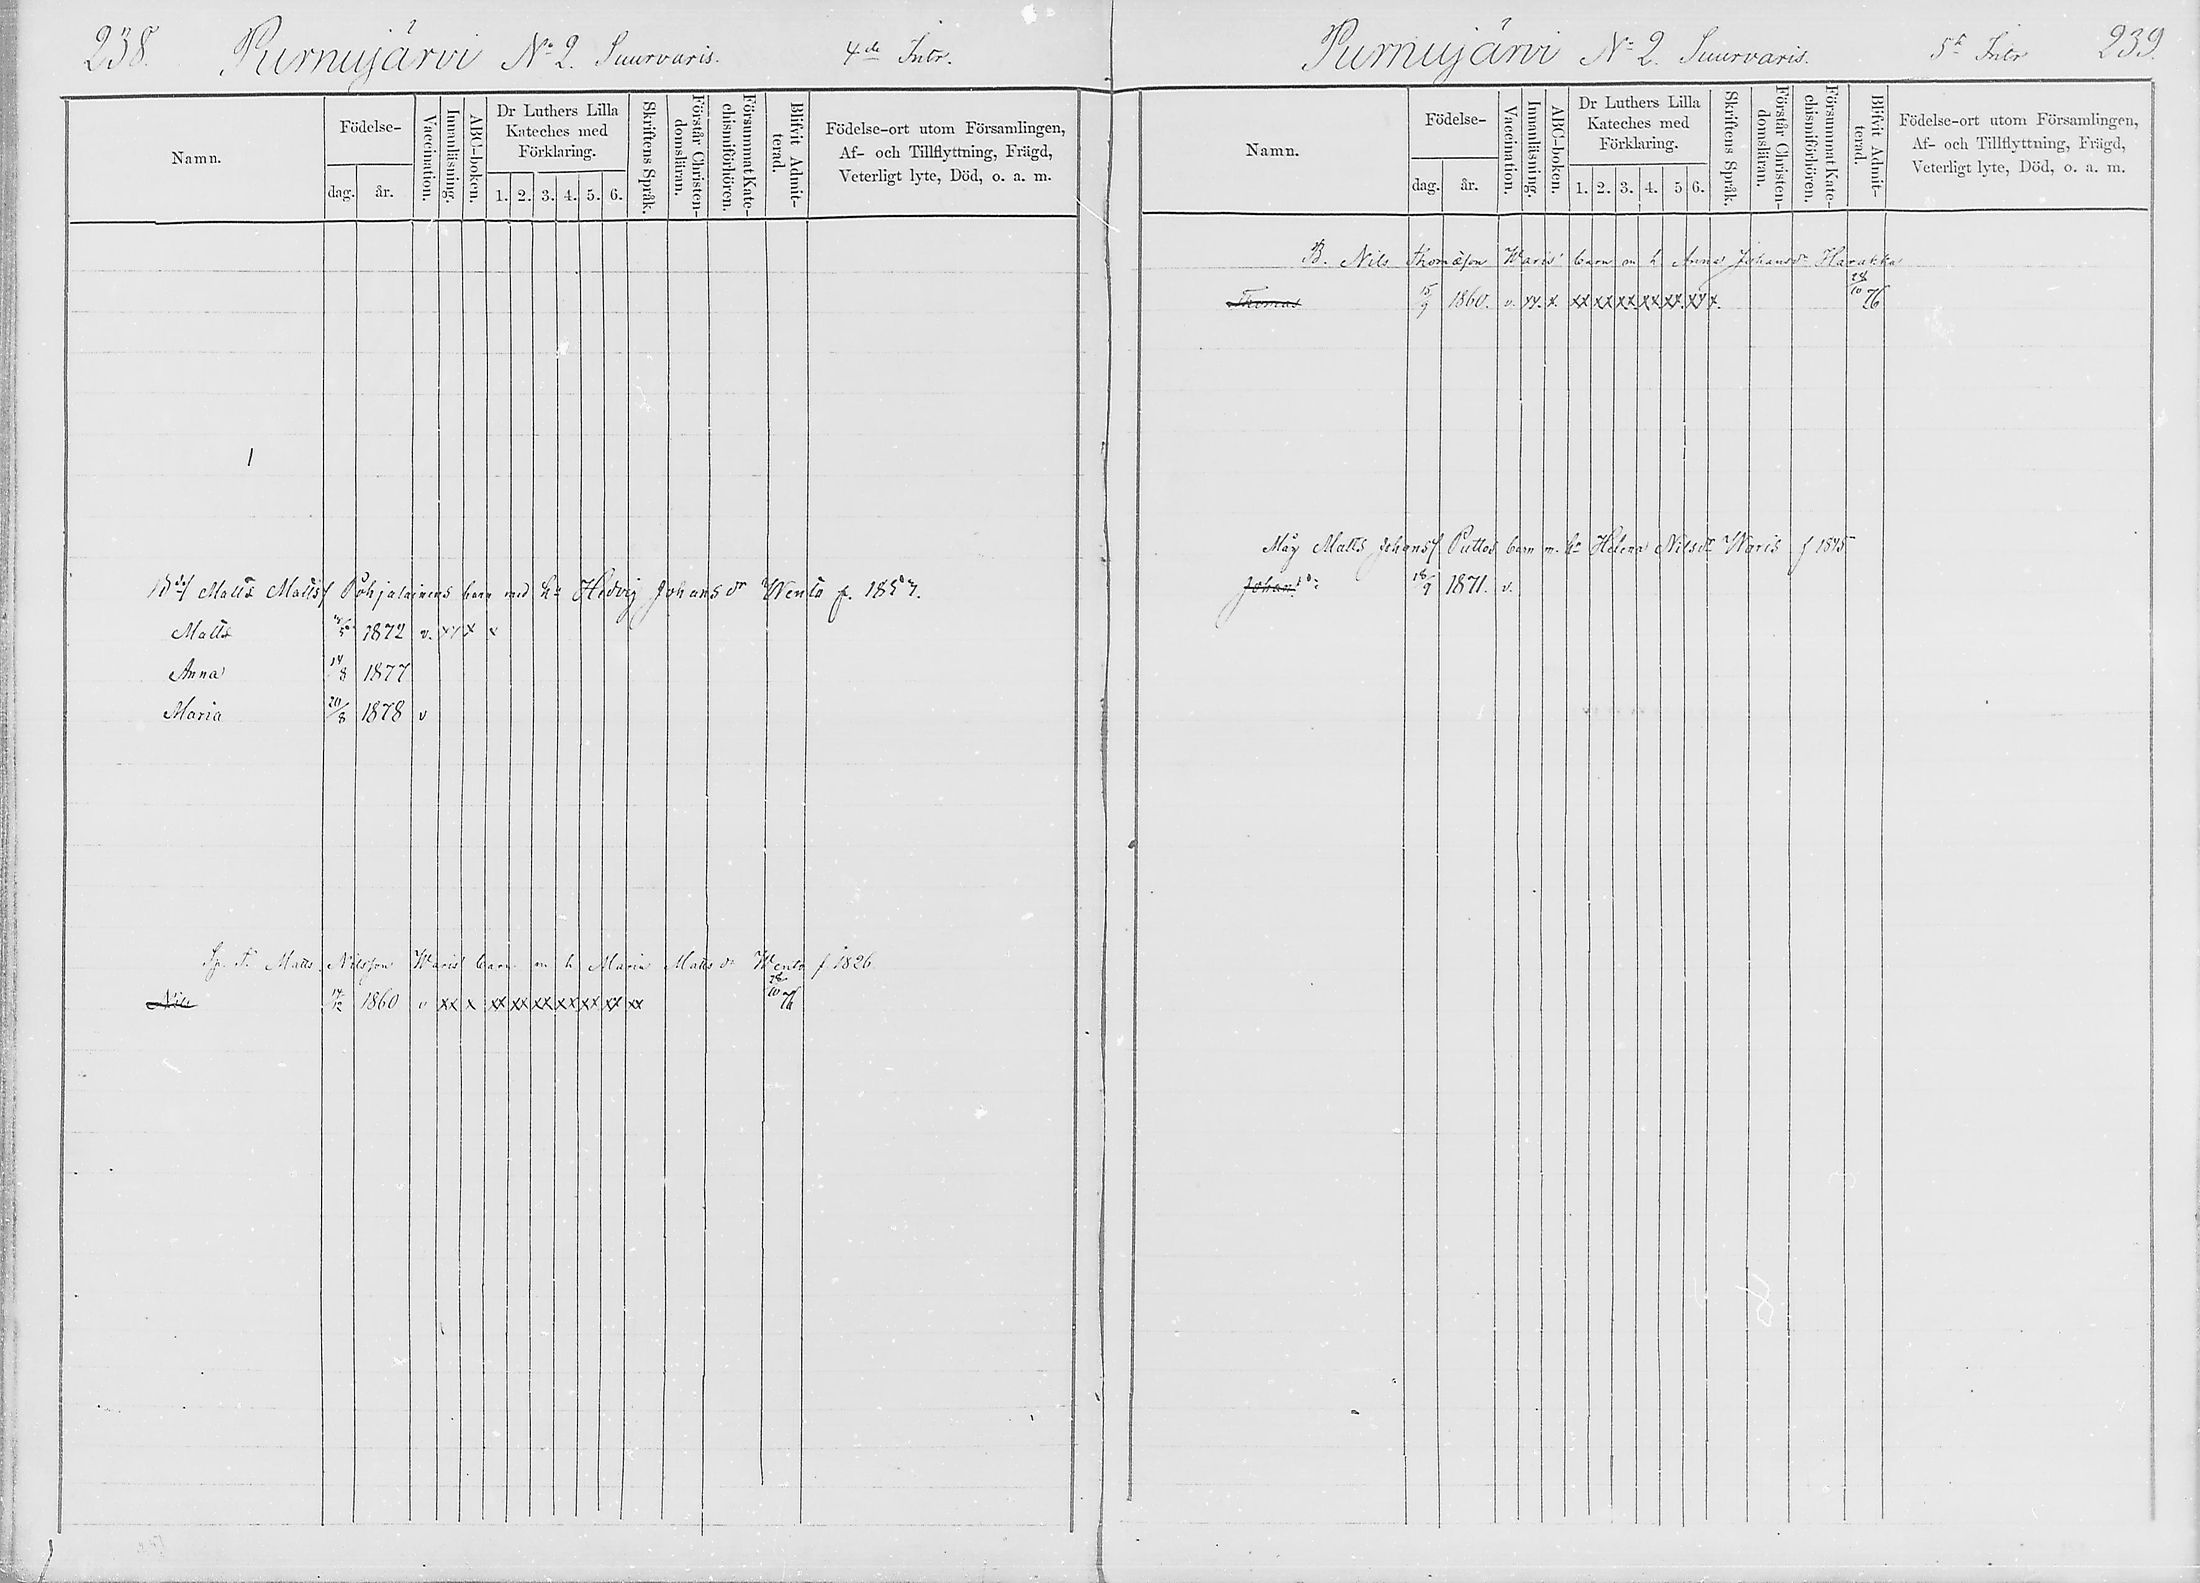 238. Purnujärvi No 2. Suurvaris. 4de Intr.
Namn.
Födelse-
dag. år.
Vaccination.
Innanläsning.
ABC-boken.
Dr Luthers Lilla
Kateches med
Förklaring.
1. 2. 3. 4. 5. 6.
Skriftens Språk.
Förstår Christen-
domsläran.
Försummat Kate-
chismiförhören.
Blifvit Admit-
terad.
Födelse-ort utom Församlingen,
Af- och Tillflyttning, Frägd,
Veterligt lyte, Död, o. a. m.
Matts Mattsf Pohjalainens barn med h: Hedvig Johansdr Wento f.
Matts 1872 v. xx x x
Anna 14/8 1877
Maria 20/8 1878 v
Matts Nilsson Waris' barn m h Maria Mattsdr Wento f. 1826
Nils 14/12 1860 v xx x xx xx xx xx xx xx xx 28/10 76
Purnujärvi No 2. Suurvaris. 5t Intr 239.
Namn.
Födelse-
dag. år.
Vaccination.
Innanläsning.
ABC-boken.
Dr Luthers Lilla
Kateches med
Förklaring.
1. 2. 3. 4. 5 6.
Skriftens Språk.
Förstår Christen-
domsläran.
Försummat Kate-
chismiförhören.
Blifvit Admit-
terad.
Födelse-ort utom Församlingen,
Af- och Tillflyttning, Frägd,
Veterligt lyte, Död, o. a. m.
B. Nils Thomasson Waris' barn m h Anna Johansdr Harakka
Thomas 15/9 1860. v. xx. x. xx xx xx xx xx xx x. 28/10 76
Matts Johansf Puttos barn m. h: Helena Nilsdr Waris f 1845
Johan 18/9 1871. v.